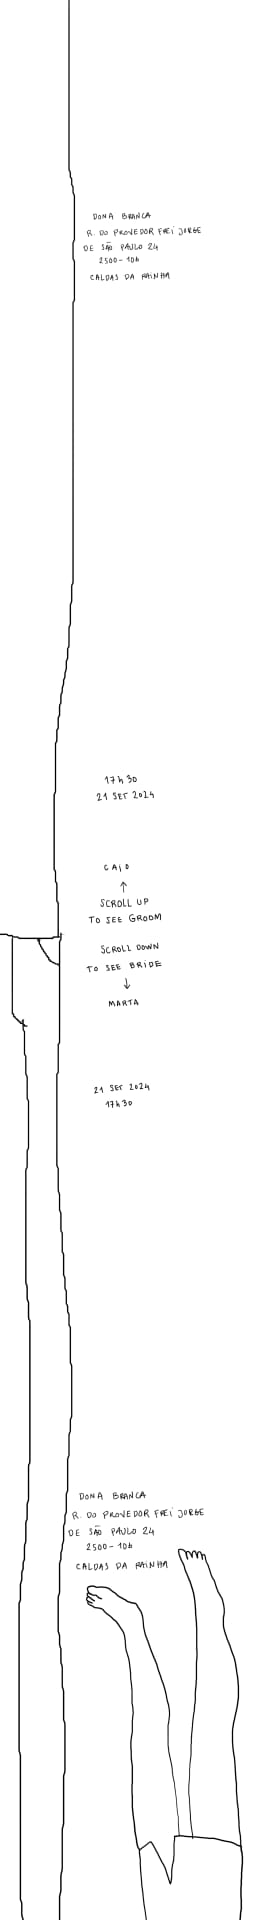 DONA BRANCA
R. DO PROVEDOR FREI JORGE
DE SÃO PAULO 24
2500-106
CALDAS DA RAINHA
17h30
21 SET 2024
CAIO
↑
SCROLL UP
TO SEE GROOM
SCROLL DOWN
TO SEE BRIDE
↓
MARTA
21 SET 2024
17h30
DONA BRANCA
R. DO PROVEDOR FREI JORGE
DE SÃO PAULO 24
2500-106
CALDAS DA RAINHA